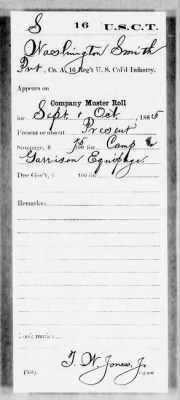 S 16 U.S.C.T.
Washington Smith
Pvt, Co. A, 16 Reg't U. S. Col'd Infantry.
Appears on
Company Muster Roll
for Sept & Oct, 1865
Present or absent Present
Stoppage, $ 100 for Camp &
Garrison Equipage.
Due Gov't, $ 100 for
Remarks:
Book mark:
T. W. Jones, Jr.
Copyist.